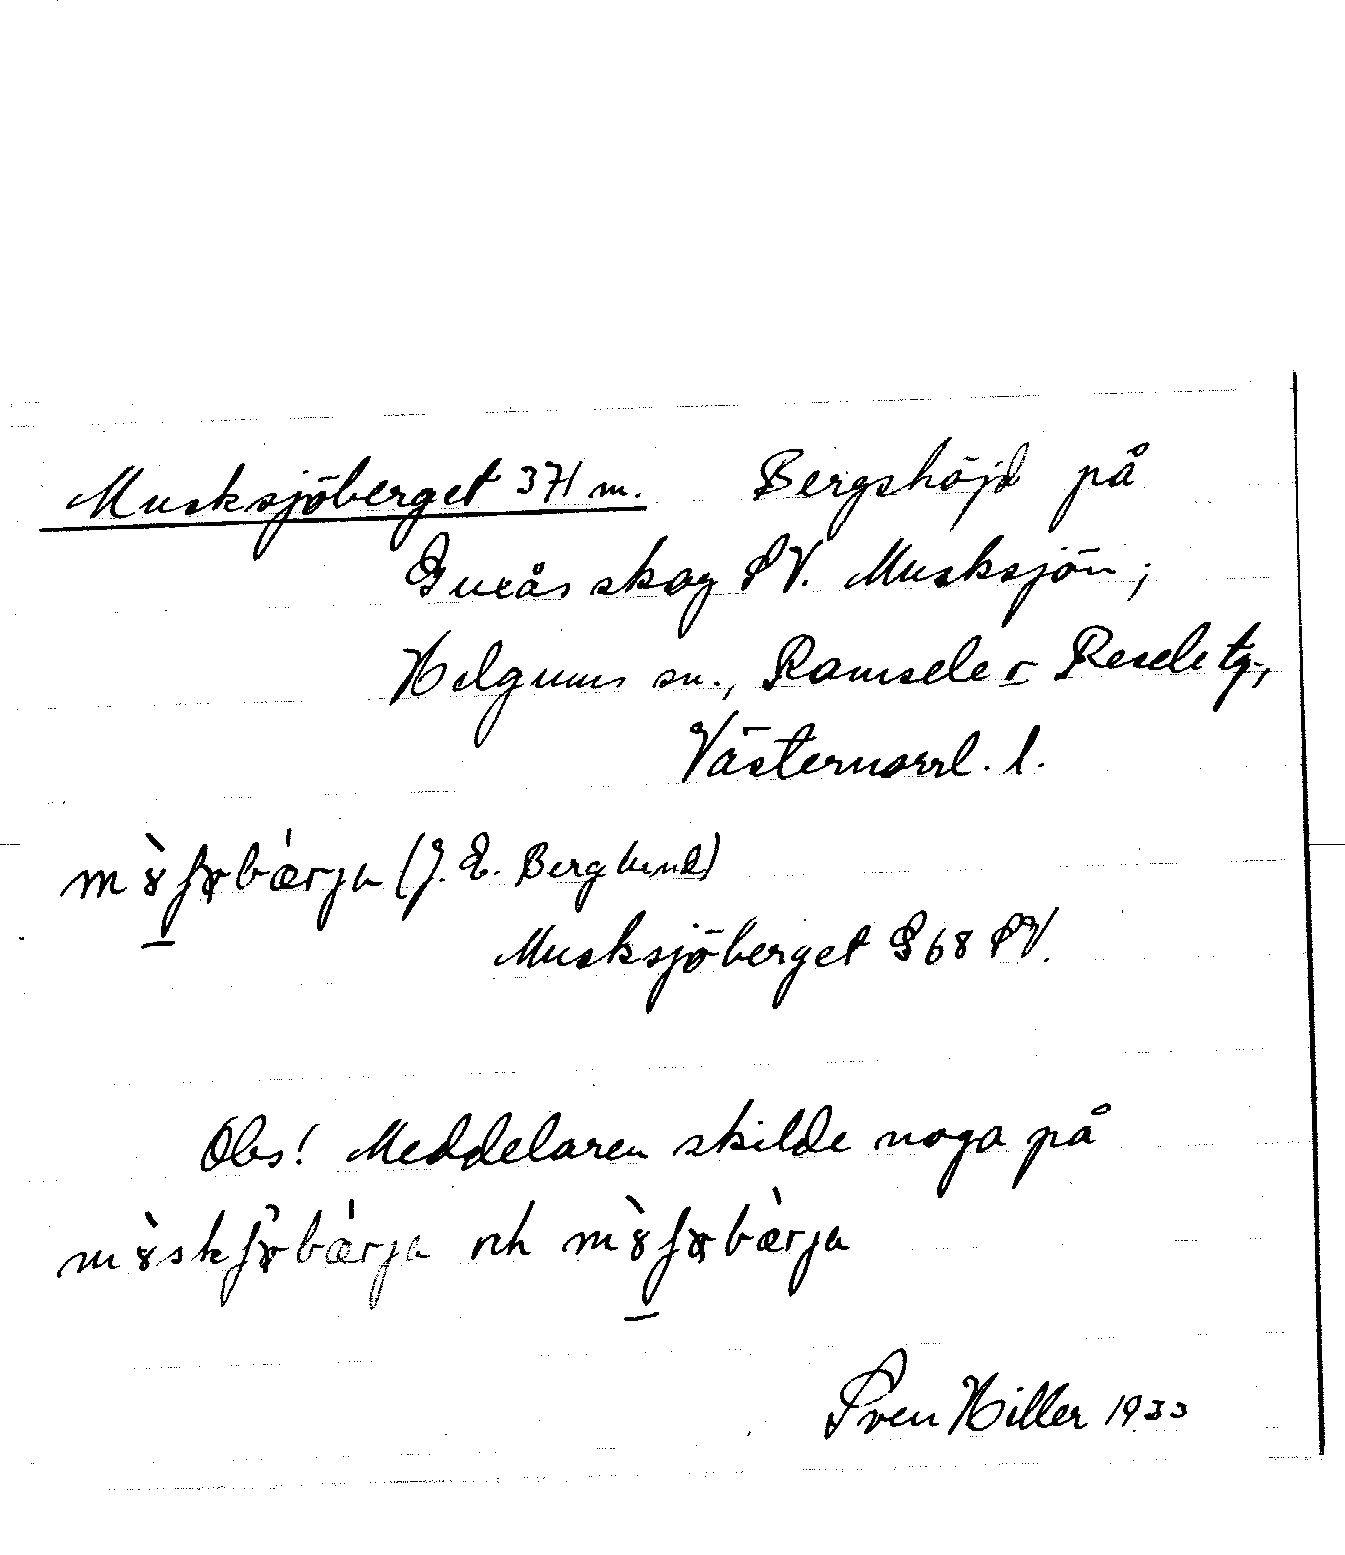 Musksjöberget 371 m. Bergshöjd på
Guxås skog SV. Musksjön;
Helgums sn., Ramsele o Resele tg.,
Västernorrl. l.
(J. E. Berglund)
Musksjöberget G68 SV.
Obs! Meddelaren skilde noga på
och
Sven Hiller 1933